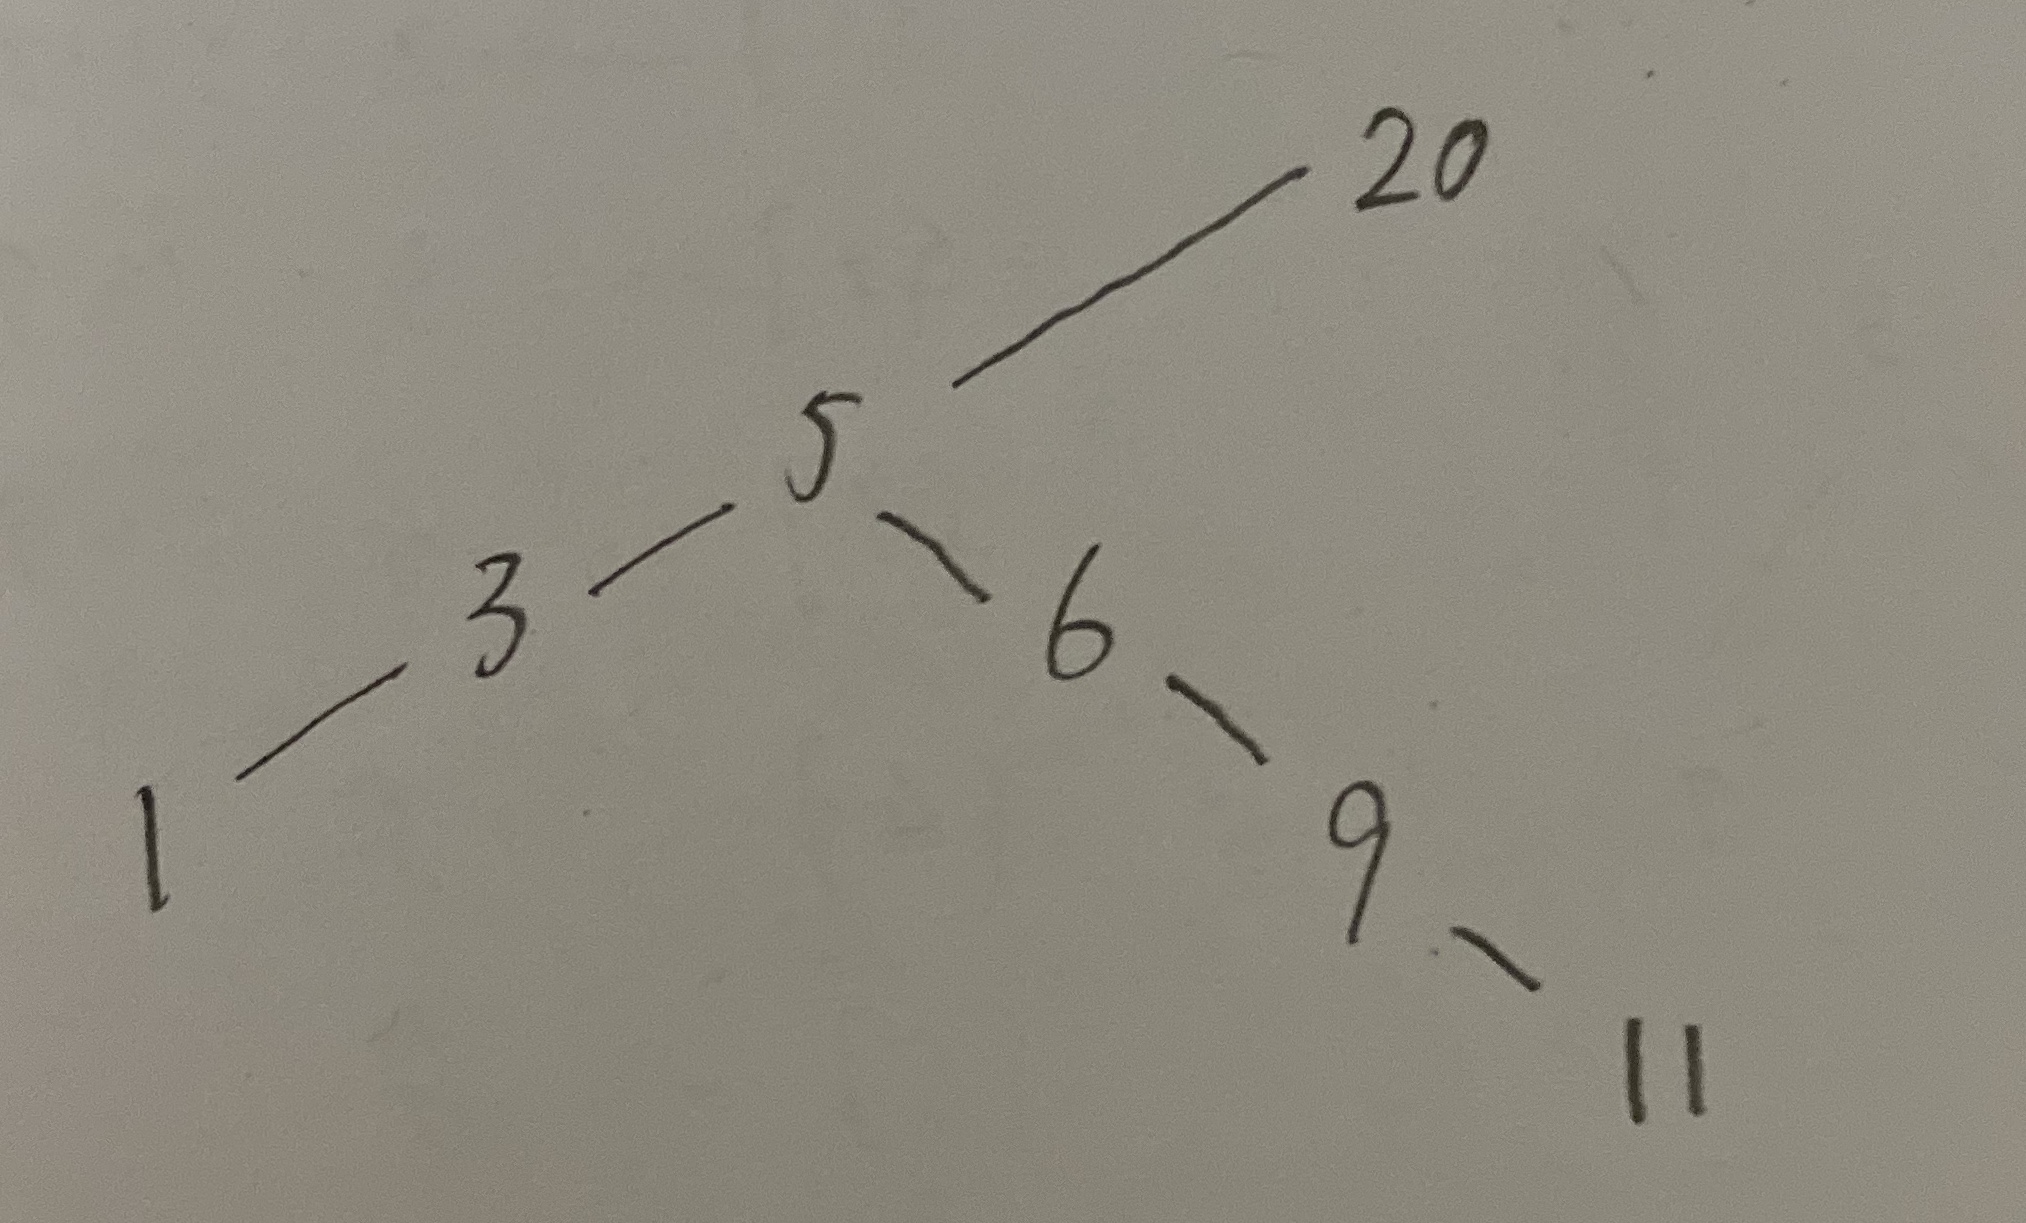 20
5
3 6
1 9
11